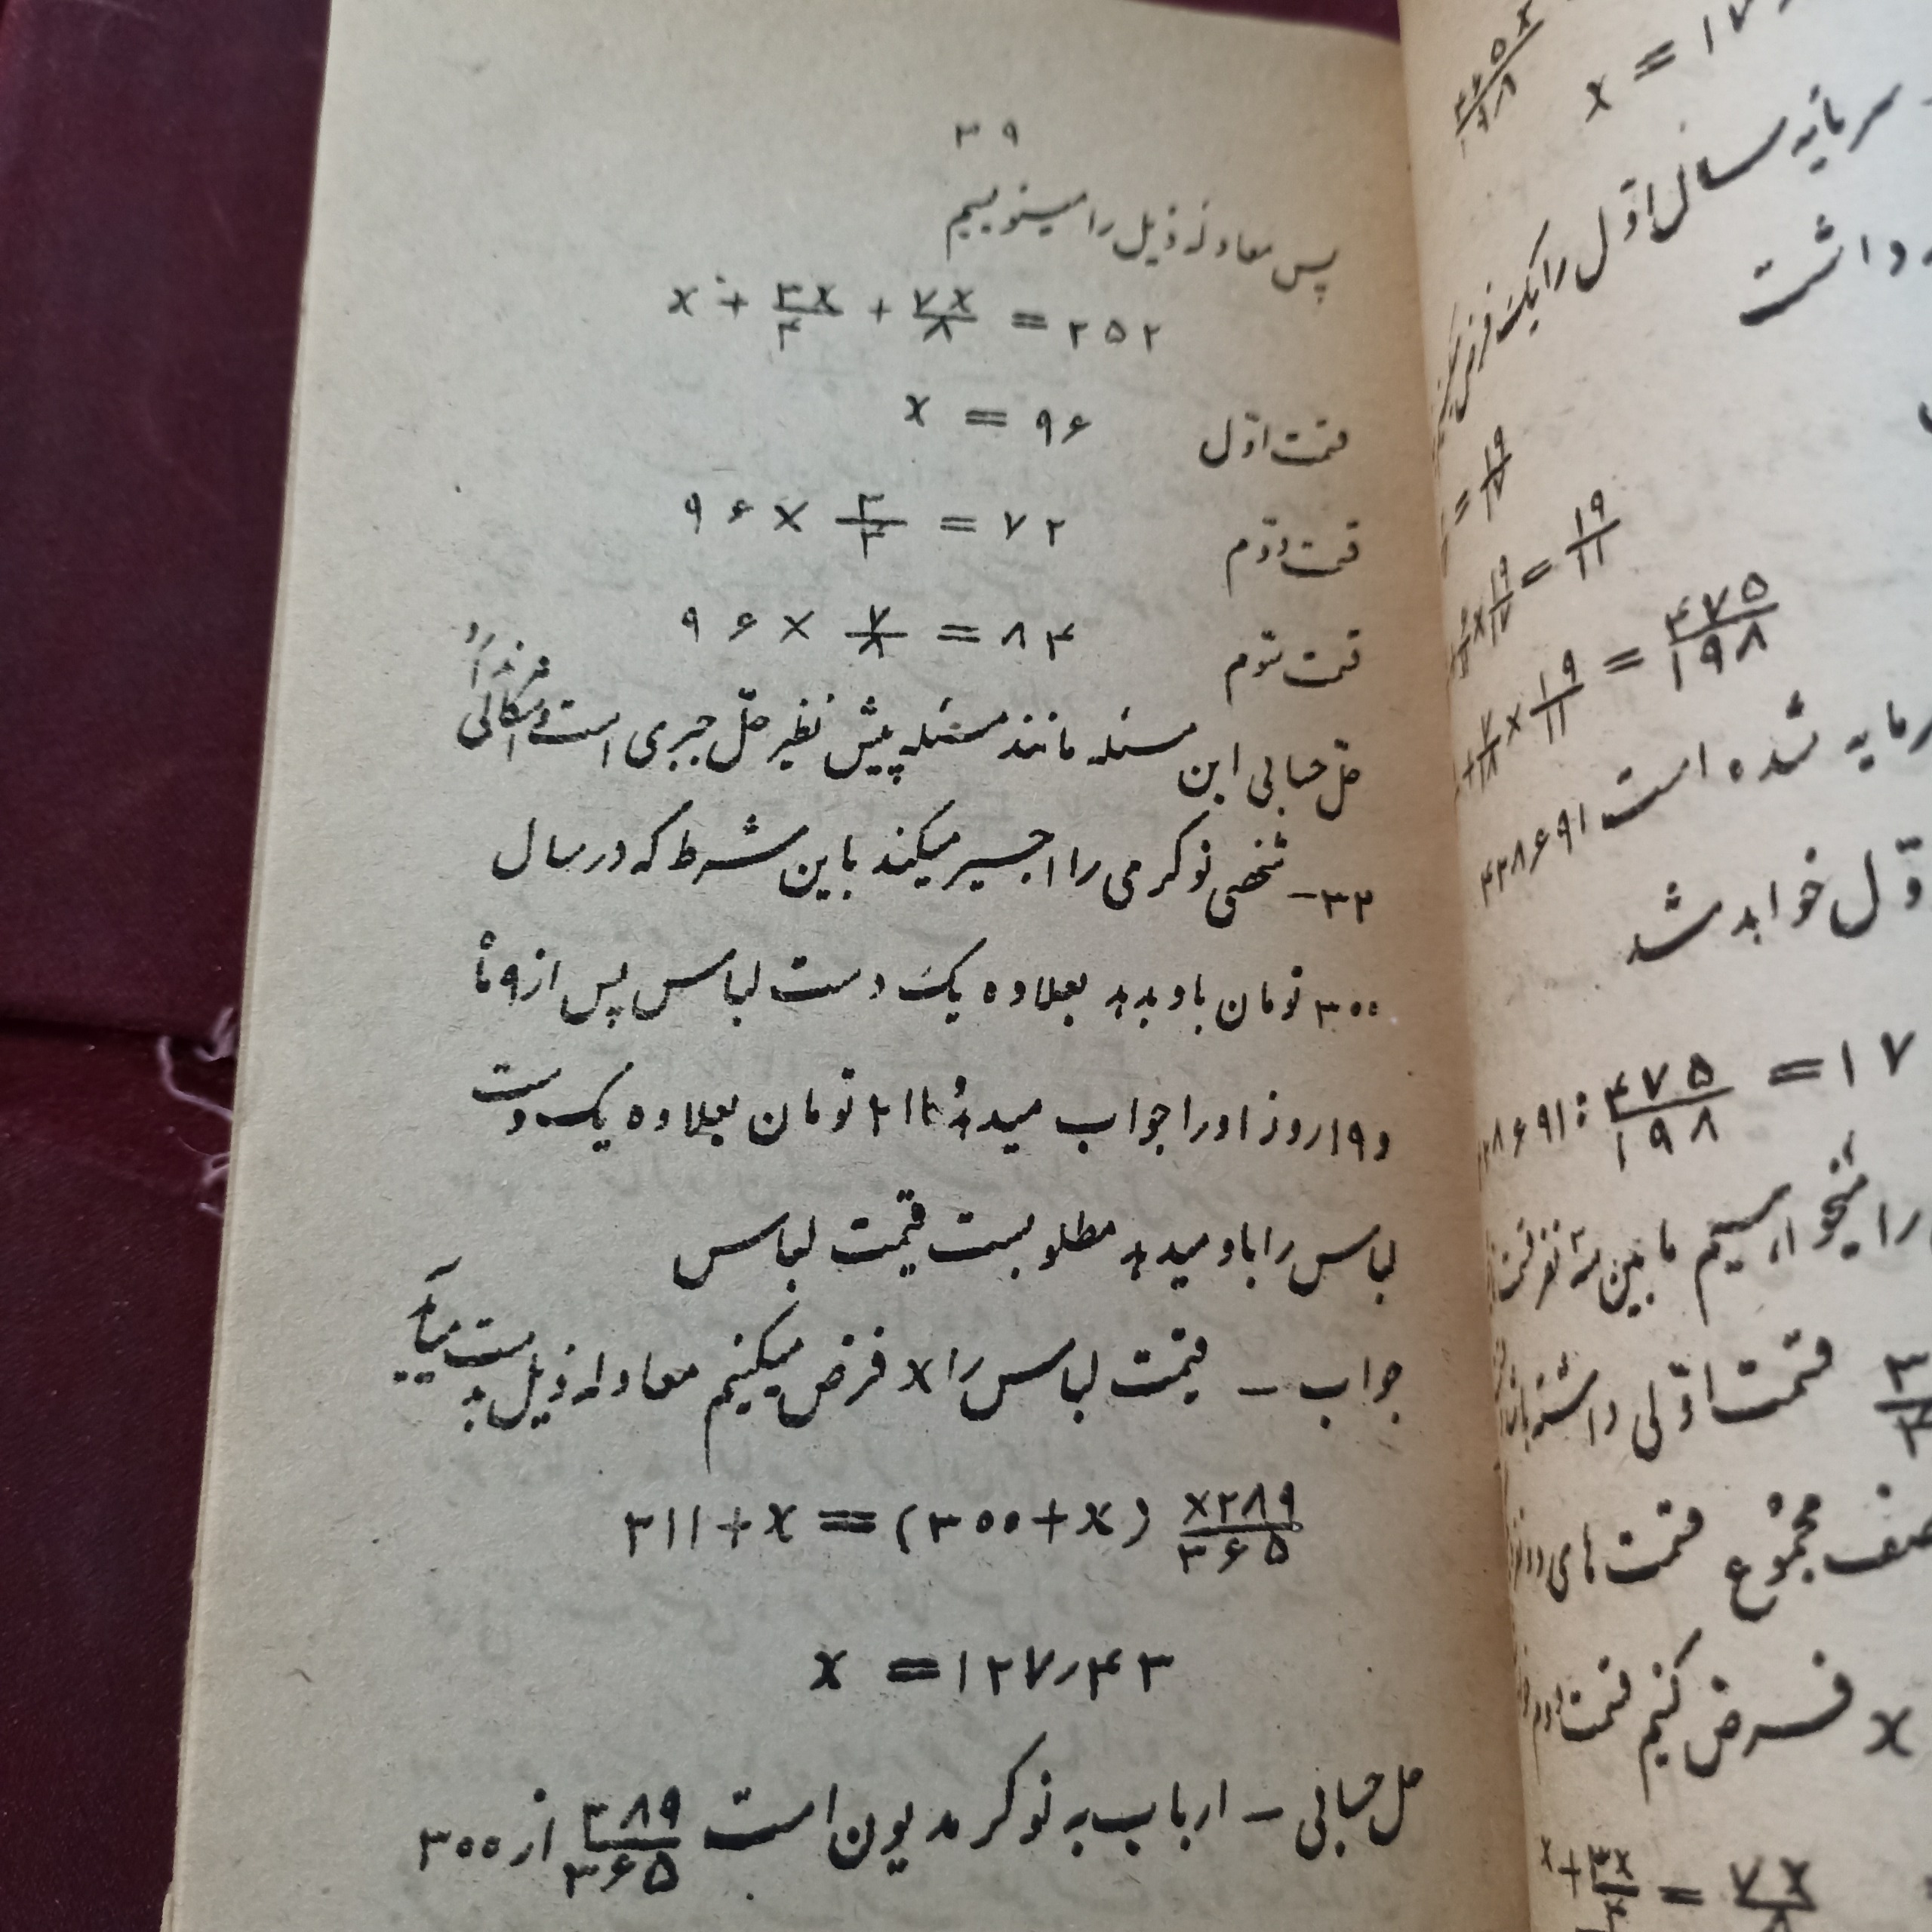 ۳۹
پس معادله ذیل را مینویسیم
x + ۳x/۴ + ۷x/۸ = ۲۵۲
قسمت اوّل x = ۹۶
قسمت دوّم ۹۶ × ۳/۴ = ۷۲
قسمت سوّم ۹۶ × ۷/۸ = ۸۴
حلّ حسابی این مسئله مانند مسئله پیش نظیر حلّ جبری است و اشکالی ندارد
۳۲- شخصی نوکری را اجیر میکند باین شرط که در سال
۳۰۰ تومان باو بدهد بعلاوه یک دست لباس پس از ۹ ماه
و ۱۹ روز او را جواب میدهد ۲۱۱ تومان بعلاوه یک دست
لباس را باو میدهد مطلوبست قیمت لباس
جواب – قیمت لباس را x فرض میکنیم معادله ذیل بدست میآید
۳۱۱+x = (۳۰۰+x) ×۲۸۹/۳۶۵
x = ۱۲۷٫۴۳
حل حسابی – ارباب به نوکر مدیون است ۳۸۹/۳۶۵ از ۳۰۰
سرمایه سال اوّل را یک فرض
داشت
= ۱۹/۱۷
× ۱۹/۱۷ = ۱۹/۱۱
× ۱۹/۱۱ = ۴۷۵/۱۹۸
شده است ۴۲۸۶۹۱
خواهد شد
: ۴۷۵/۱۹۸ = ۱۷
را میخواهیم مابین سه نفر
قسمت اوّلی داشته باشد
مجموع قسمت های دو نفر
x فرض کنیم قسمت دوم
x + ۳x/۴ = ۷x/۸